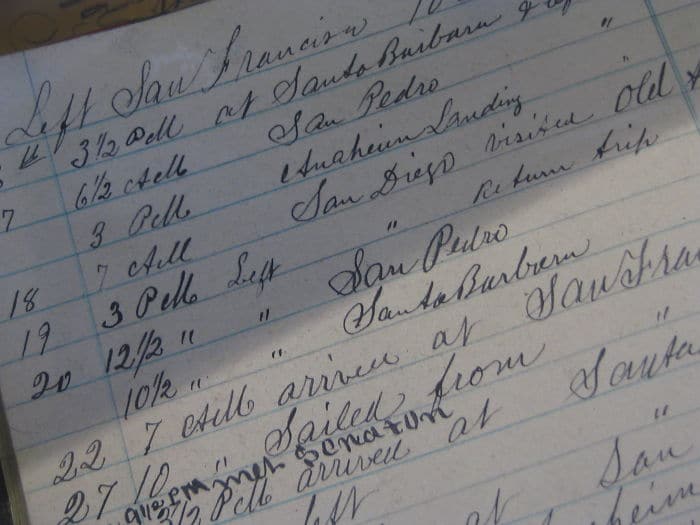 Left San Francisco 10
" 3½ PM at Santa Barbara
6½ AM San Pedro "
7 3 PM Anaheim Landing "
7 AM San Diego visited Old
18 3 PM Left " Return trip
19 12½ " " San Pedro
20 10½ " " Santa Barbara
22 7 AM arrived at San Fran
27 10 " Sailed from "
9½ PM met Senator
3½ PM arrived at Santa
left "
at San